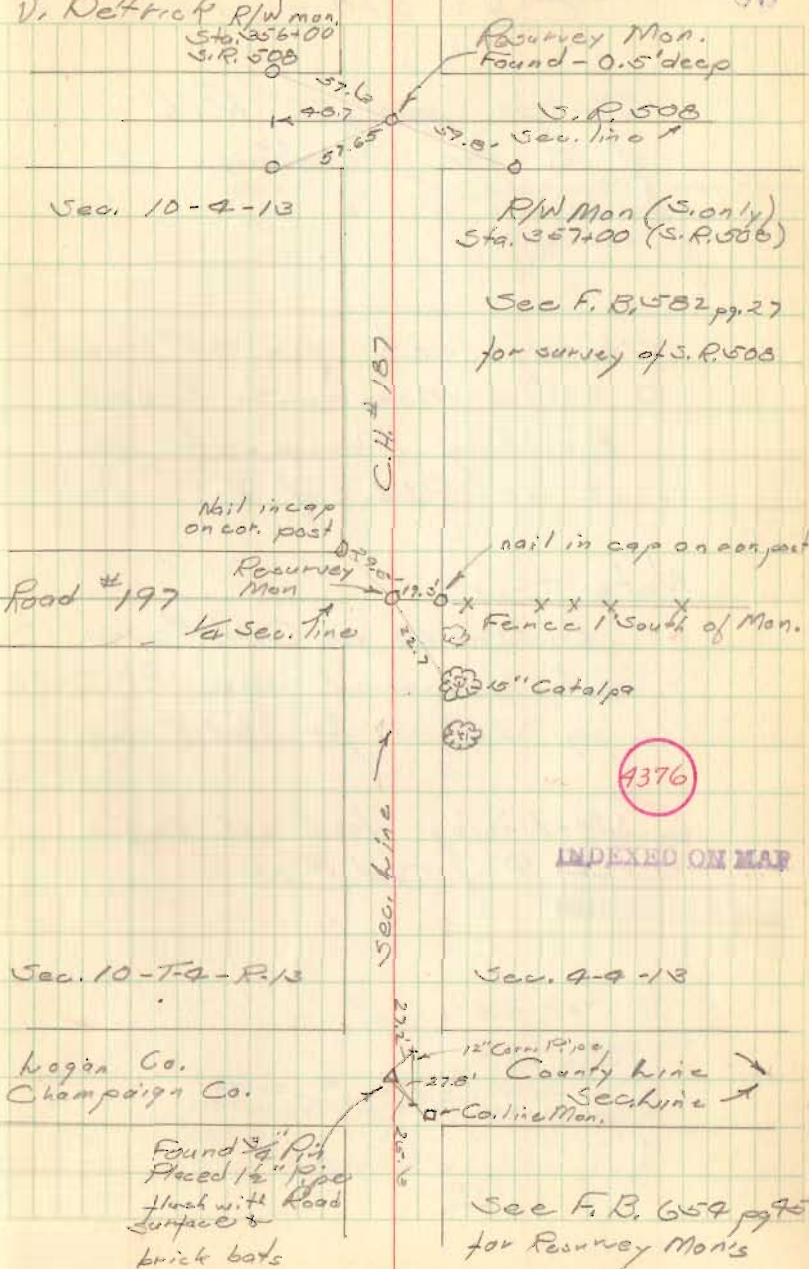 V. Detrick R/W mon.
Sta. 356+00
S.R. 508
Resurvey Mon.
Found - 0.5' deep
57.6
48.7
57.65
57.8
S.R. 508
Sec. line
Sec. 10-4-13
R/W Mon (S. only)
Sta. 357+00 (S.R. 508)
See F.B. 582 pg. 27
for survey of S.R. 508
C.H. # 187
Nail in cap
on cor. post
nail in cap on cor. post
Resurvey
Mon
19.3'
Road #197
1/4 Sec. line
22.7
Fence 1' South of Mon.
15" Catalpa
4376
INDEXED ON MAP
Sec. Line
Sec. 10-T-4-R-13
Sec. 4-4-13
27.2'
12" Corr. Pipe
Logan Co.
Champaign Co.
27.8'
County Line
Sec. Line
Co. line Mon.
26.6
Found 3/4" Pin
Placed 1½" Pipe
flush with Road
surface &
brick bats
See F.B. 654 pg 45
for Resurvey Mon's